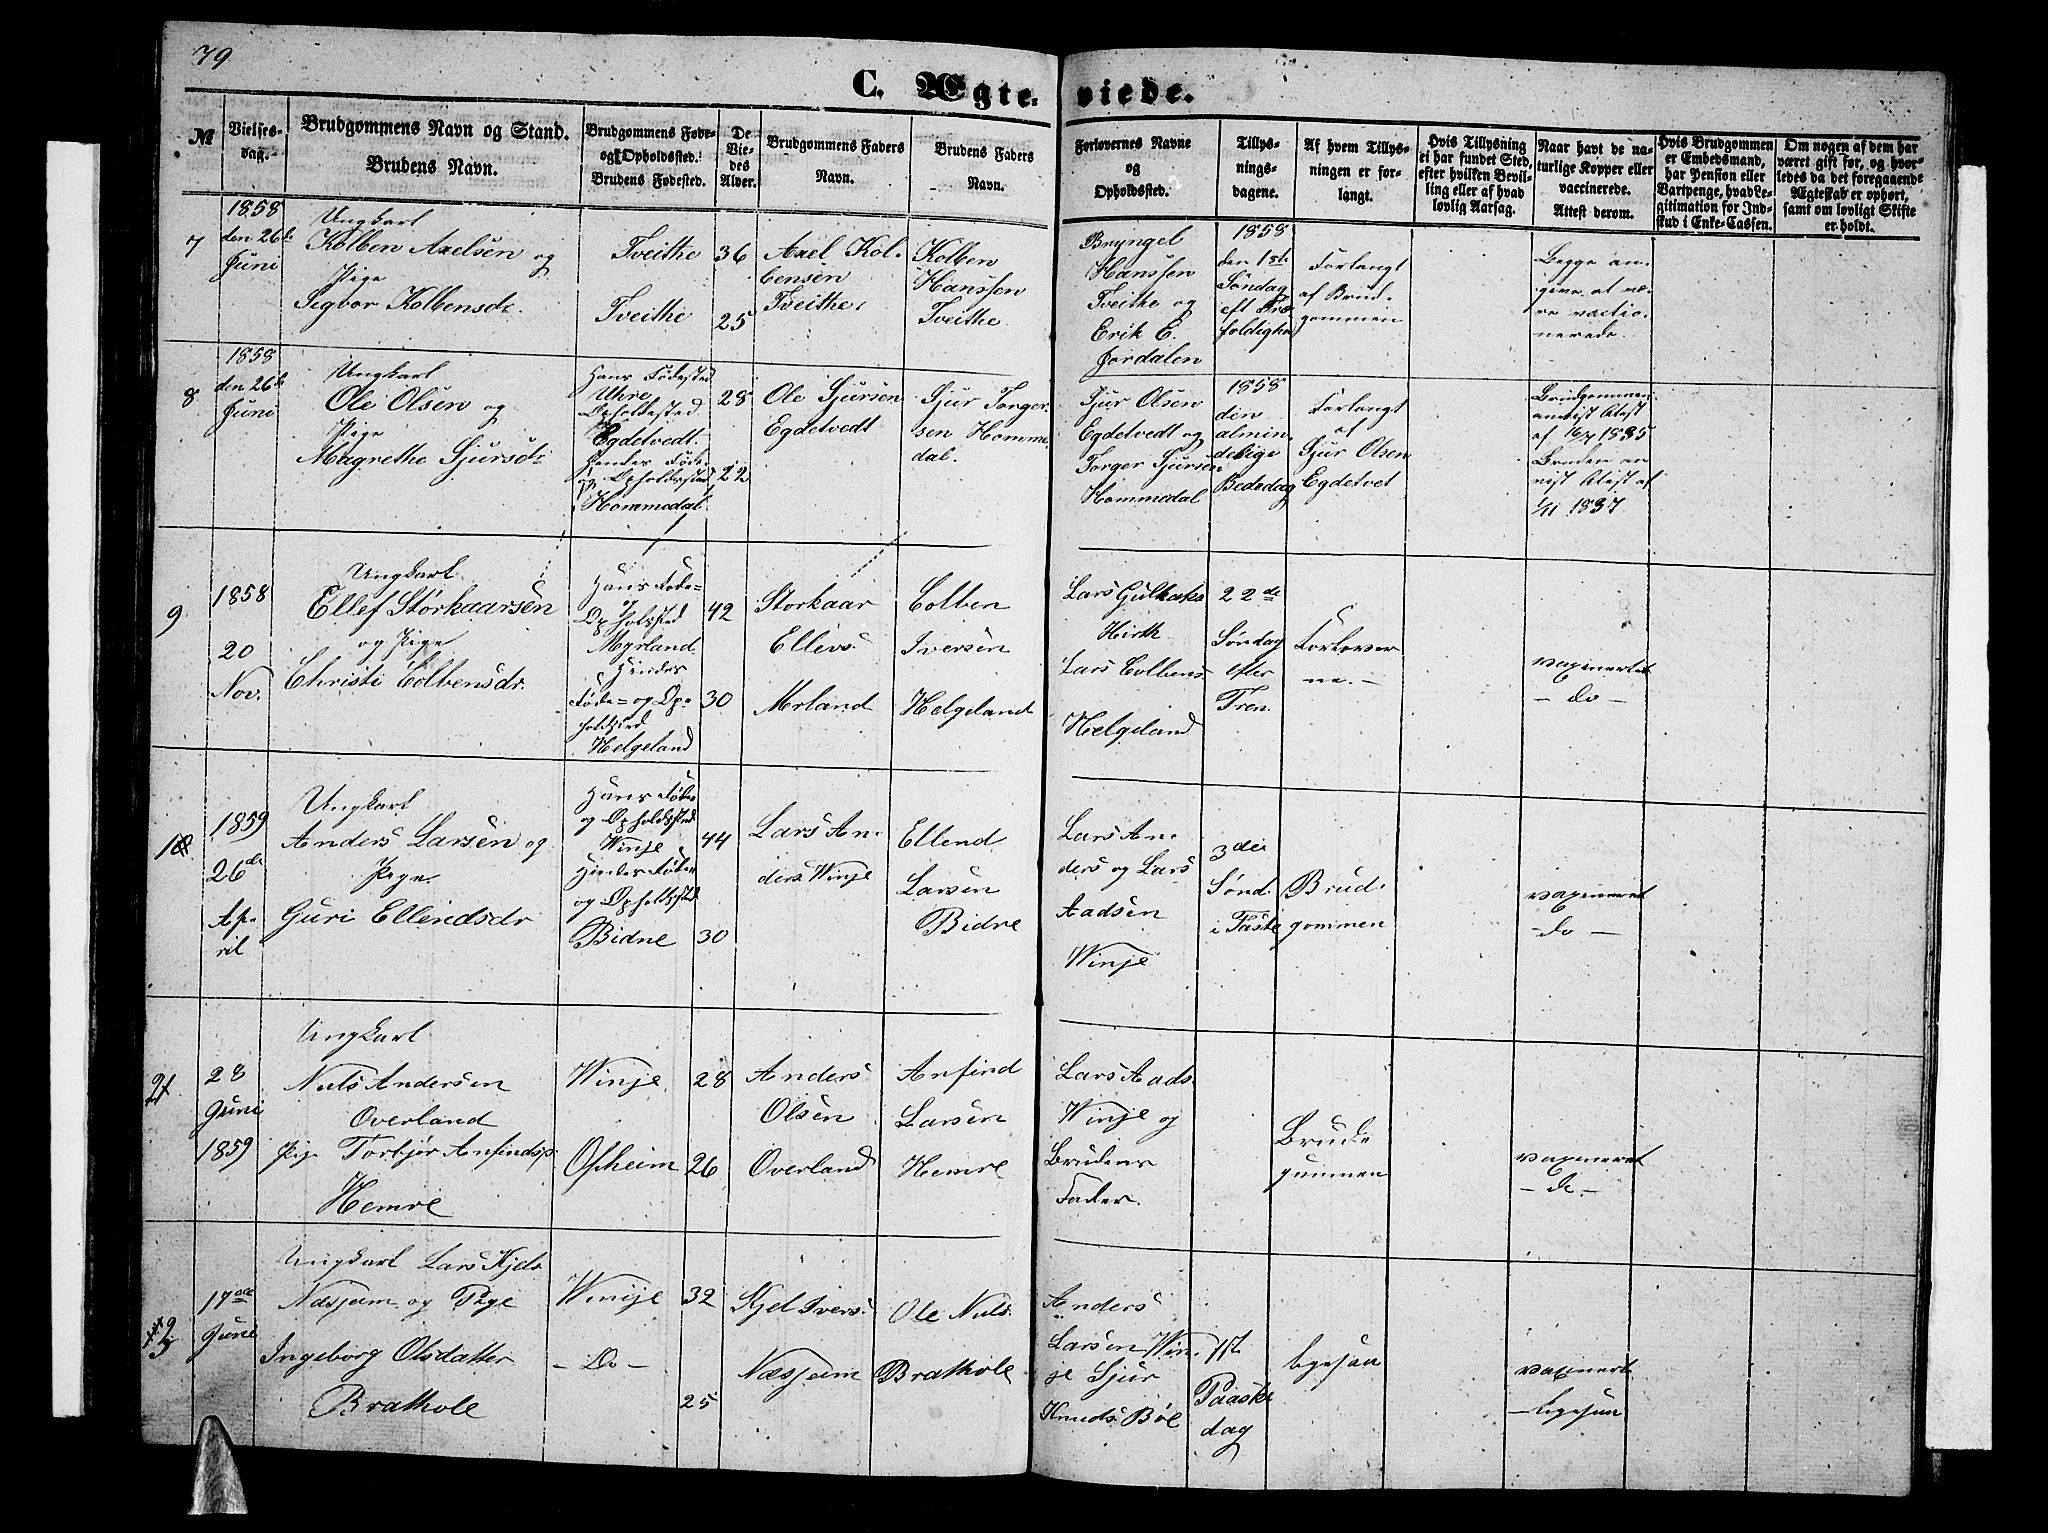 79
C. Ægte-viede.
№
Vielses-
dag.
Brudgommens Navn og Stand.
Brudens Navn.
Brudgommens Føde-
og Opholdssted.
Brudens Fødested.
De
Vie-
des
Alder.
Brudgommens Faders
Navn.
Brudens Faders
Navn.
Forlovernes Navne
og
Opholdssted.
Tillys-
nings-
dagene.
Af hvem Tillys-
ningen er for-
langt.
Hvis Tillysning
ei har fundet Sted,
efter hvilken Bevil-
ling eller af hvad
lovlig Aarsag.
Naar havt de na-
turlige Kopper eller
vaccinerede.
Attest derom.
Hvis Brudgommen
er Embedsmand,
har Pension eller
Vartpenge, hvad Le-
gitimation for Ind-
skud i Enke-Cassen.
Om nogen af dem har
været gift før, og hvor-
ledes da det foregaaende
Ægteskab er ophørt,
samt om lovligt Skifte
er holdt.
7
1858
den 26de
Juni
Ungkarl
Kolben Axelsen og
Pige
Sigvor Kolbensdr.
Tveithe
Tveithe
36
25
Axel Kol-
bensen
Tveithe.
Kolben
Hanssen
Tveithe
Bryngel
Hanssen
Tveithe og
Erik E.
Jordalen
1858
den 1ste
Søndag
eft Tre-
foldighed
Forlangt
af Brud-
gommen
Begge an-
give at væ-
re vactio-
nerede.
8
1858
den 26de
Juni
Ungkarl
Ole Olsen og
Pige
Magrethe Sjursdr
Hans Fødested
Uhre
Opholdssted
Egdetvedt.
Hendes Føde-
og Opholdssted
Hommedal
28
22
Ole Sjursen
Egdetvedt
Sjur Torger-
sen Homme-
dal.
Sjur Olsen
Egdetvedt og
Torger Sjursen
Hommedal
1858
den
almin-
delige
Bededag
Forlangt
af
Sjur Olsen
Egdetvet
Brudgommen
anvist Atest
af 16/7 1835
Bruden an-
vist Atest af
1/11 1837
9
1858
20
Nov.
Ungkarl
Ellef Storkaarsen
og Pige
Christi Colbensdr.
Hans Føde-
og
Opholdssted
Myrland
Hendes
Føde- og Op-
holdssted
Helgeland
42
30
Storkaar
Ellevs.
Mrland
Colben
Iversen
Helgeland
Lars Gulhaks
Hirth
Lars Colbens
Helgeland
22de
Søndag
efter
Tren.
Forlover
ne.
vaxineret
- do -
10
1859
26de
Ap-
ril
Ungkarl
Anders Larsen og
Pige
Guri Ellendsdr
Hans Føde-
og Opholdssted
Winje
Hendes Føde-
og Opholdssted
Bidne
44
30
Lars An-
ders. Winje
Ellend
Larsen
Bidne
Lars An-
ders og Lars
Aadsen
Winje
3die
Sønd.
i Faste
Brud-
gommen
vaxineret
- do -
28
Juni
1859
Ungkarl
Nils Andersen
Overland
Pige Torbjør Anfindsdr
Hemre
Winje
Opheim
28
26
Anders
Olsen
Overland
Anfind
Larsen
Hemre
Lars Aads.
Winje og
Brudens
Fader.
Brude
gummen
vaxineret
- do -
17de
Juni
Ungkarl Lars Kjels.
Næsjeim og Pige
Ingeborg Olsdatter
Brathole
Winje
- Do -
32
25
Kjel Ivers.
Næsjeim
Ole Nils.
Brathole
Anders
Larsen Win-
je Sjur
Knuds. Bøe
1ste
Paaske
dag
ligesaa
vaxinert
- ligesaa